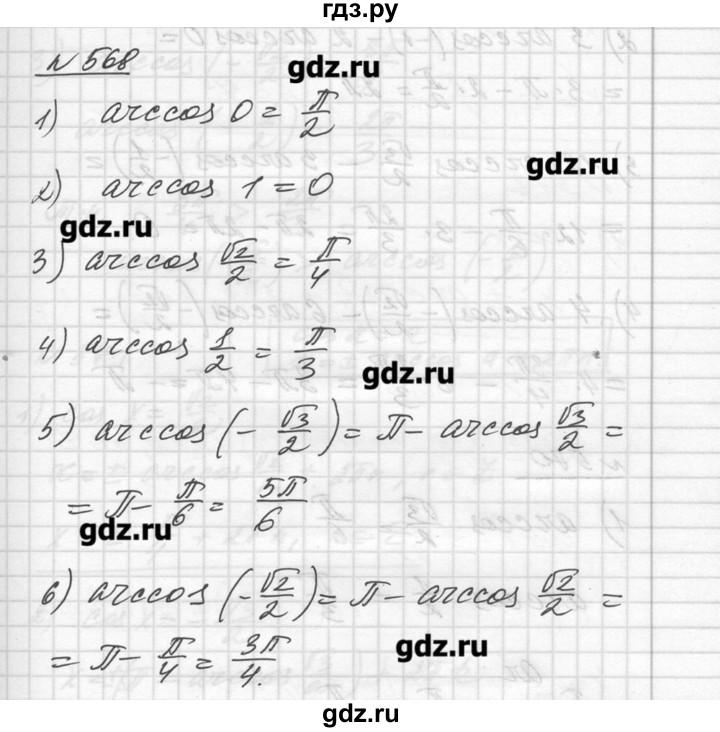 гдз.ру
№ 568
gdz.ru
1) arccos 0 = π/2
gdz.ru
2) arccos 1 = 0
gdz.ru
3) arccos √2/2 = π/4
4) arccos 1/2 = π/3
gdz.ru
5) arccos (- √3/2) = π - arccos √3/2 =
= π - π/6 = 5π/6
gdz.ru
6) arccos (- √2/2) = π - arccos √2/2 =
gdz.ru
= π - π/4 = 3π/4.
gdz.ru